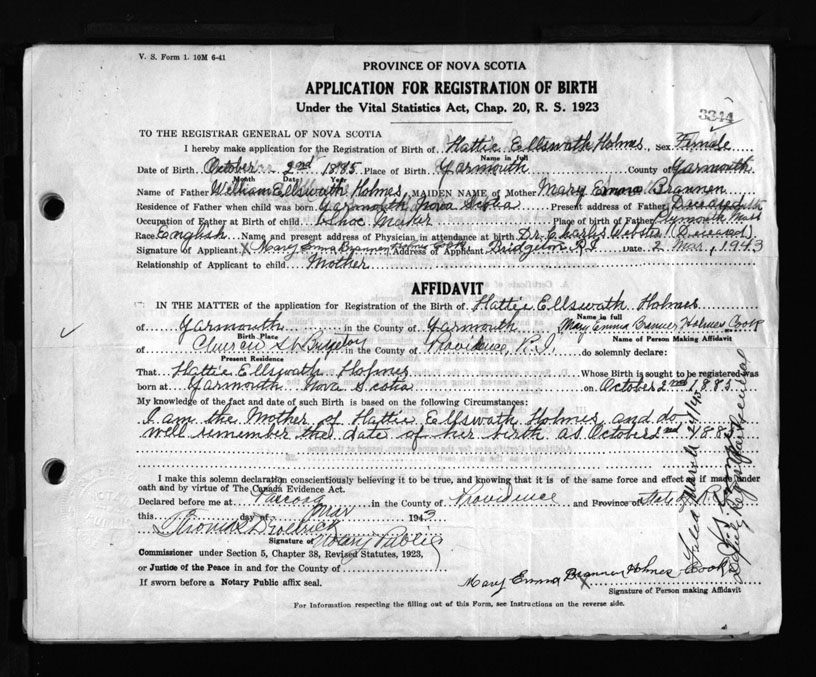 V. S. Form 1. 10M 6-41
PROVINCE OF NOVA SCOTIA
APPLICATION FOR REGISTRATION OF BIRTH
Under the Vital Statistics Act, Chap. 20, R. S. 1923
3344
TO THE REGISTRAR GENERAL OF NOVA SCOTIA
I hereby make application for the Registration of Birth of Hattie Ellswath Holmes, Sex Female
Name in full
Date of Birth October 2nd 1885 Place of Birth Yarmouth County of Yarmouth
Month Date Year
Name of Father William Ellswath Holmes, MAIDEN NAME of Mother Mary Emma Brannen
Residence of Father when child was born Yarmouth Nova Scotia Present address of Father
Occupation of Father at Birth of child Shoe Maker Place of birth of Father Plymouth Mass
Race English Name and present address of Physician in attendance at birth Dr. Charles Webster (Deceased)
Signature of Applicant X Mary Emma Brannen Holmes Cook Address of Applicant Bridgeton R.I. Date 2 Mar, 1943
Relationship of Applicant to child Mother
AFFIDAVIT
IN THE MATTER of the application for Registration of the Birth of Hattie Ellswath Holmes
Name in full
of Yarmouth in the County of Yarmouth, Mary Emma Holmes Cook
Birth Place Name of Person Making Affidavit
of in the County of Providence, R.I. do solemnly declare:
Present Residence
That Hattie Ellswath Holmes Whose Birth is sought to be registered was
born at Yarmouth Nova Scotia on October 2nd, 1885.
My knowledge of the fact and date of such Birth is based on the following Circumstances:
I am the Mother of Hattie Ellswath Holmes, and do
well remember the date of her birth as October 2nd 1885
I make this solemn declaration conscientiously believing it to be true, and knowing that it is of the same force and effect as if made under
oath and by virtue of The Canada Evidence Act.
Declared before me at Pascoag in the County of Providence and Province of State of R.I.
this day of Mar 1943
Signature of Notary Public
Commissioner under Section 5, Chapter 38, Revised Statutes, 1923,
or Justice of the Peace in and for the County of
If sworn before a Notary Public affix seal.
Mary Emma Brannen Holmes Cook
Signature of Person making Affidavit
For Information respecting the filling out of this Form, see Instructions on the reverse side.
Deputy Registrar General